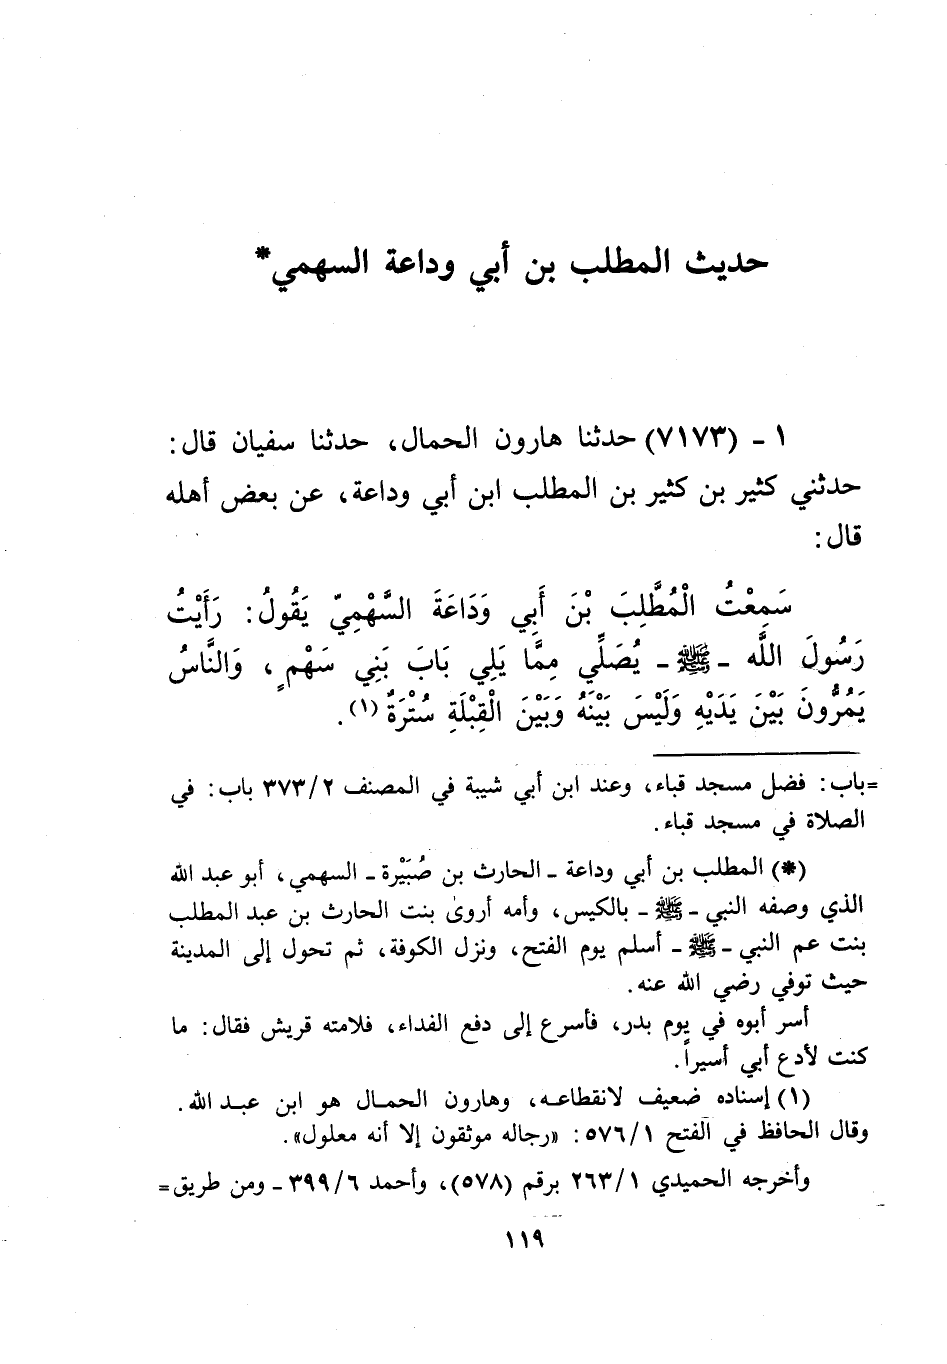 حديث المطلب بن أبي وداعة السهمي*
١ ـ (٧١٧٣) حدثنا هارون الحمال، حدثنا سفيان قال:
حدثني كثير بن كثير بن المطلب ابن أبي وداعة، عن بعض أهله
قال:
سَمِعْتُ الْمُطَّلِبَ بْنَ أَبِي وَدَاعَةَ السَّهْمِيّ يَقُولُ: رَأَيْتُ
رَسُولَ اللَّه ـ ﷺ ـ يُصَلِّي مِمَّا يَلِي بَابَ بَنِي سَهْمٍ، وَالنَّاسُ
يَمُرُّونَ بَيْنَ يَدَيْهِ وَلَيْسَ بَيْنَهُ وَبَيْنَ الْقِبْلَةِ سُتْرَةٌ (١).
=باب: فضل مسجد قباء، وعند ابن أبي شيبة في المصنف ٣٧٣/٢ باب: في
الصلاة في مسجد قباء.
(*) المطلب بن أبي وداعة ـ الحارث بن صُبَيْرة ـ السهمي، أبو عبد الله
الذي وصفه النبي ـ ﷺ ـ بالكيس، وأمه أروى بنت الحارث بن عبد المطلب
بنت عم النبي ـ ﷺ ـ أسلم يوم الفتح، ونزل الكوفة، ثم تحول إلى المدينة
حيث توفي رضي الله عنه.
أسر أبوه في يوم بدر، فأسرع إلى دفع الفداء، فلامته قريش فقال: ما
كنت لأدع أبي أسيراً.
(١) إسناده ضعيف لانقطاعه، وهارون الحمال هو ابن عبد الله.
وقال الحافظ في الفتح ٥٧٦/١: «رجاله موثقون إلا أنه معلول».
وأخرجه الحميدي ٢٦٣/١ برقم (٥٧٨)، وأحمد ٣٩٩/٦ ـ ومن طريق=
١١٩